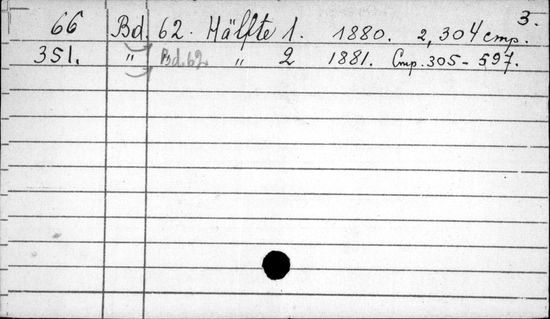 3.
66 Bd. 62. Hälfte 1. 1880. 2, 304 стр.
351. " Bd. 62. " 2 1881. Стр. 305-597.